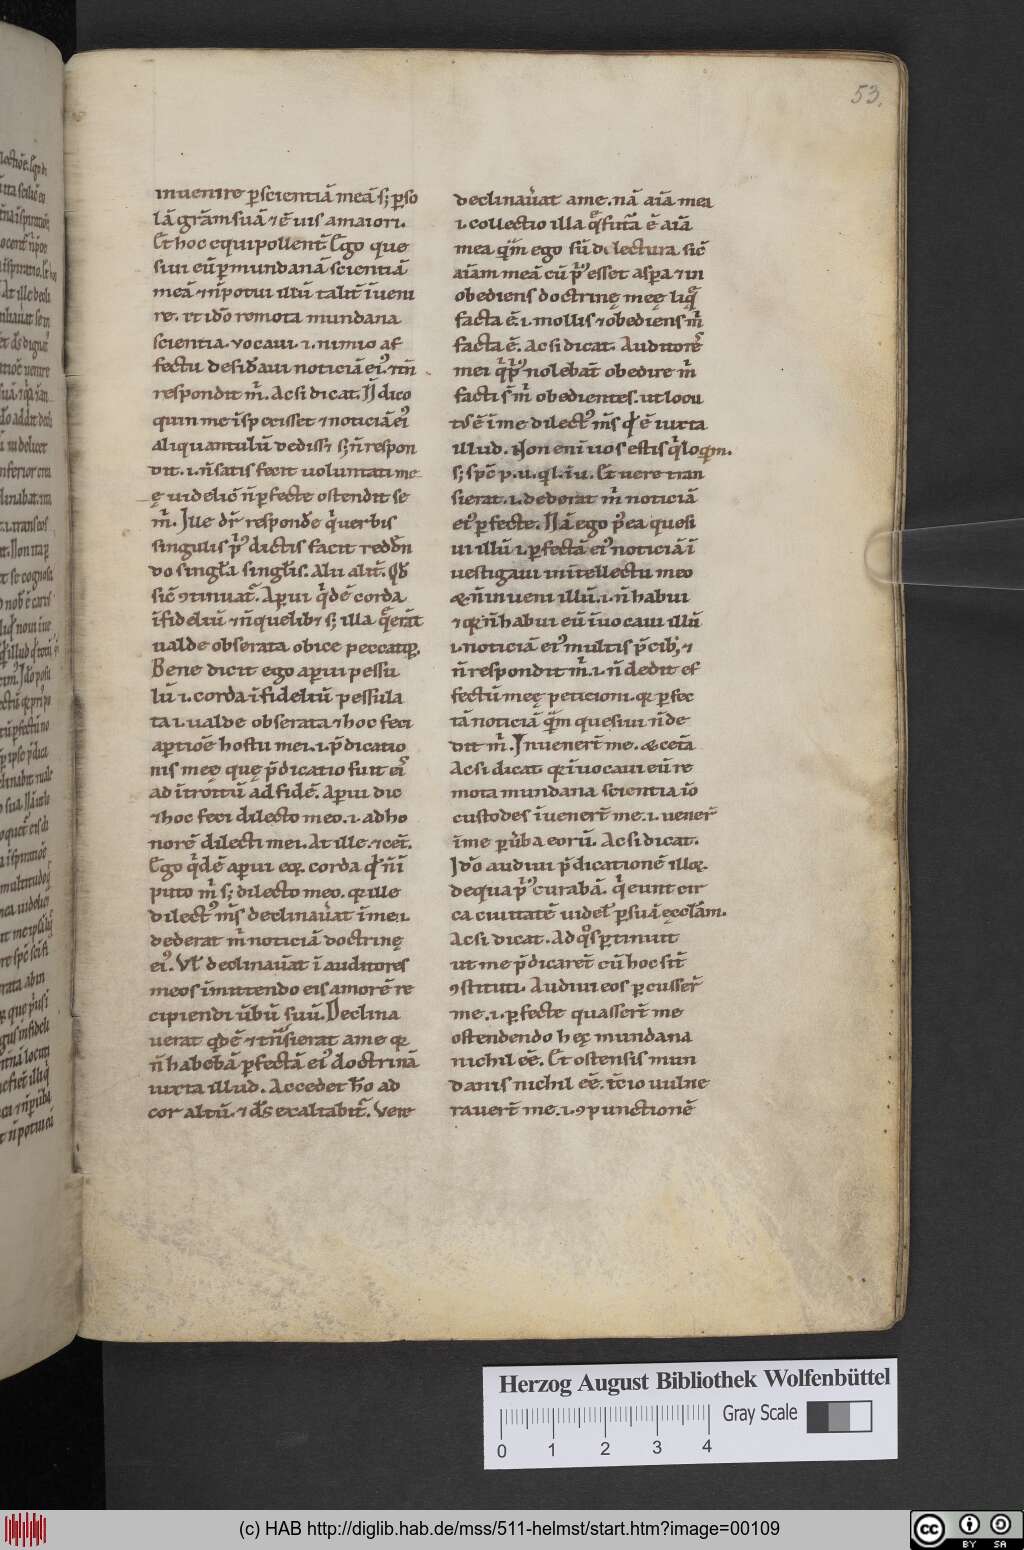 53.
inuenire p̄scientiā meā s; p̄so
lā grām suā ⁊ ē uis amaiori.
Et hoc equipollent̄ Ego que
siui eū p̄ mundanā scientiā
meā ⁊ n̄ potui illū talit̄ īueni
re. et idō remota mundana
scientia. vocaui .i. nimio af
fectu desid̄aui noticiā ei᷒ ⁊ n̄
respondit m̄. Acsi dicat. N̄ dico
quin me īsp exisset ⁊ noticiā ei᷒
aliquantulū dediss; s; n̄ respon
dit .i. n̄ satis fecit uoluntati me
ę uidelic̄ n̄ p̄fecte ostendit se
m̄. Ille dr̄ responde q̄ uerbis
singulis p᷒ dictis facit reddn̄
do singl̄a singl̄is. Alii alit̄. Qd̄
sic̄ ꝯtinuat᷑. Aperui q̄dē corda
īfideliū ⁊ n̄ quelib; s; illa q̄ erāt
ualde obserata obice peccatoꝝ.
Bene dicit ego aperui pessu
lū .i. corda īfideliū pessula
ta .i. ualde obserata ⁊ hoc feci
ap̄tiōē hostii mei .i. p̄dicatio
nis meę quę p̄dicatio fuit ei᷒
ad ītroitū ad fidē. Aperui dic
⁊ hoc feci dilecto meo .i. ad ho
norē dilecti mei. At ille. ⁊ cet̄.
Ego q̄dē aperui eoꝝ corda qd̄ n̄ ī
puto m̄ s; dilecto meo. qꝛ ille
dilect᷒ m̄s declinau̾at ī me .i.
dederat m̄ noticiā doctrinę
ei᷒. Vl̄ declinau̾at ī auditores
meos īmittendo eis amorē re
cipiendi ūbū suū. Declina
uerat qdē ⁊ tn̄ sierat a me qꝛ
n̄ habebā p̄fectā ei᷒ doctrinā
iuxta illud. Accedet hō ad
cor altū. ⁊ ds̄ exaltabit᷑. Vere
declinau̾at a me. nā aīā mei
.i. collectio illa q̄ futa᷑ ē aīā
mea qm̄ ego sū dilectura sic̄
aīam meā cū p᷒ esset asp̄a ⁊ in
obediens doctrinę meę liq̄
facta ē .i. mollis ⁊ obediens m̄
facta ē. Acsi dicat. Auditores
mei q̄ p᷒ nolebāt obedire m̄
facti s̄ m̄ obedientes. ut locu
t᷒ ē ī me dilect᷒ m̄s qd̄ ē iuxta
illud. Non eni uos estis q̄ loqm̄.
s; spc̄ p. u. ql. i u. Et uere tran
sierat .i. dederat m̄ noticiā
ei᷒ p̄fecte. Nā ego p᷒ea quesi
ui illū .i. p̄fectā ei᷒ noticiā ī
uestigaui intellectu meo
& n̄ inueni illū .i. n̄ habui
⁊ qꝛ n̄ habui eū īuocaui illū
.i. noticiā ei᷒ multis p̄cib; ⁊
n̄ respondit m̄ .i. n̄ dedit ef
fectū meę peticioni. qꝛ p̄fec
tā noticiā qm̄ quesiui n̄ de
dit m̄. Inuenert̄ me. & cet̄a
Acsi dicat. qꝛ īuocaui eū re
mota mundana scientia iō
custodes īuenert̄ me .i. uener̄
ī me p̄ ūba eorū. Acsi dicat.
Idō audiui p̄dicationē illoꝝ.
de qua p᷒ curabā. q̄ eunt cir
ca ciuitatē uidel̄ p̄ suā ęccl̄am.
Acsi dicat. Ad qs̄ p̄tinuit
ut me p̄dicaret̄ cū hoc sit̄
ꝯstituti. Audiui eos percusser̄
me .i. p̄fecte quassert̄ me
ostendendo hęc mundana
nichil eē. Et ostensis mun
danis nichil eē. it̄io uulne
rauert̄ me .i. ꝯpunctionē
Herzog August Bibliothek Wolfenbüttel
Gray Scale
0 1 2 3 4
(c) HAB http://diglib.hab.de/mss/511-helmst/start.htm?image=00109
cc BY SA